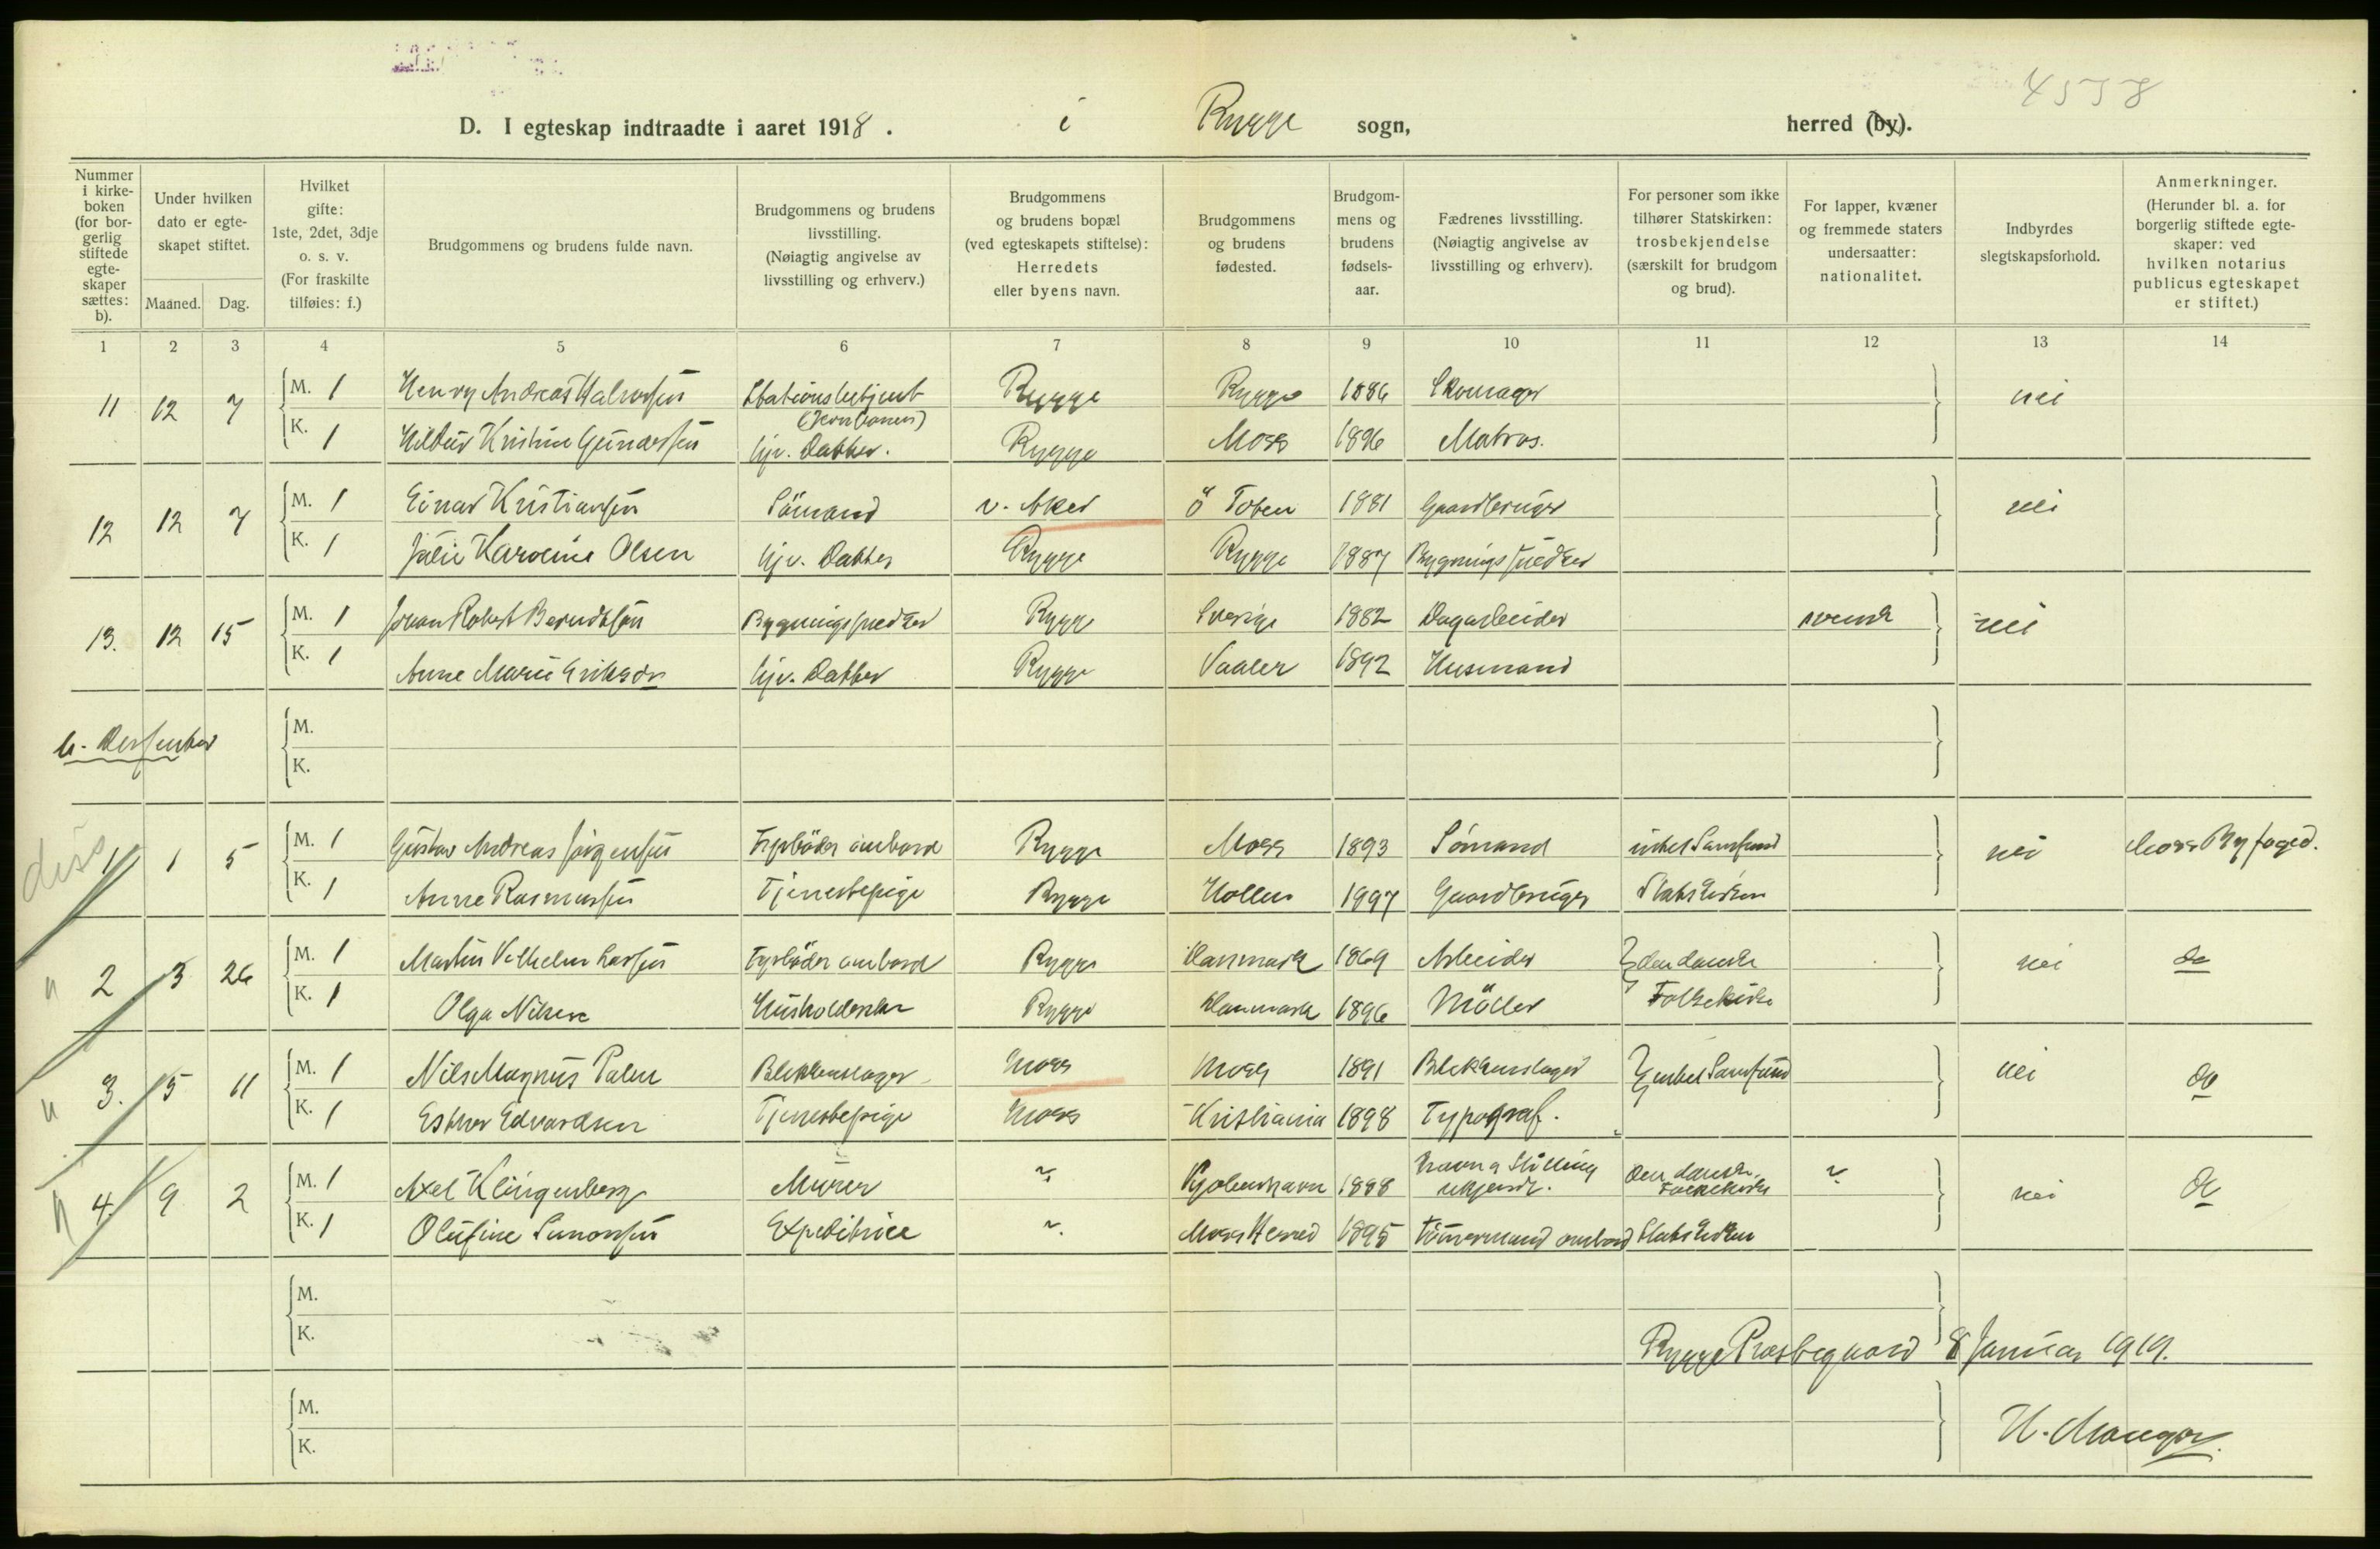 4558
D. I egteskap indtraadte i aaret 1918. i Rygge sogn, herred (by).
Nummer i kirke-boken (for bor-gerlig stiftede egte-skaper sættes: b).
Under hvilken dato er egte-skapet stiftet.
Maaned. Dag.
Hvilket gifte: 1ste, 2det, 3dje o. s. v. (For fraskilte tilføies: f.)
Brudgommens og brudens fulde navn.
Brudgommens og brudens livsstilling. (Nøiagtig angivelse av livsstilling og erhverv.)
Brudgommens og brudens bopæl (ved egteskapets stiftelse): Herredets eller byens navn.
Brudgommens og brudens fødested.
Brudgom-mens og brudens fødsels-aar.
Fædrenes livsstilling. (Nøiagtig angivelse av livsstilling og erhverv).
For personer som ikke tilhører Statskirken: trosbekjendelse (særskilt for brudgom og brud).
For lapper, kvæner og fremmede staters undersaatter: nationalitet.
Indbyrdes slegtskapsforhold.
Anmerkninger. (Herunder bl. a. for borgerlig stiftede egte-skaper: ved hvilken notarius publicus egteskapet er stiftet.)
1 2 3 4 5 6 7 8 9 10 11 12 13 14
11 12 7 M. 1 Henry Andreas Halvorsen Stationsbetjent Rygge Rygge 1886 Skomager nei
(Jernbanen)
K. 1 Kristine Gundersen hjv. Datter. Rygge Moss 1896 Matros.
12 12 7 M. 1 Einar Kristiansen Sömand v. Aker Ö Toten 1881 Gaardbruger nei
K. 1 Julie Karoline Olsen hjv. Datter Rygge Rygge 1887 Bygningssnedker
13. 12 15 M. 1 Johan Robert Berndtson Bygningssnedker Rygge Sverige 1882 Dagarbeider svensk nei
K. 1 Anne Marie Eriksdr hjv. Datter Rygge Vaaler 1892 Husmand
b. Dissenter M.
K.
diss 1 1 5 M. 1 Gustav Andreas Jörgensen Fyrböder ombord Rygge Moss 1893 Sömand intet Samfund nei Moss Byfoged.
K. 1 Anne Rasmussen Tjenestepige Rygge 1997 Gaardbruger Statskirken
" 2 3 26 M. 1 Martin Vilhelm Larsen Fyrböder ombord Rygge Danmark 1869 Arbeider den danske nei do
K. 1 Olga Nilsen Husholderske Rygge Danmark 1896 Möller Folkekirke
" 3. 5 11 M. 1 Nils Magnus Palm Blikkenslager Moss Moss 1891 Blikkenslager intet Samfund nei do
K. 1 Esther Edvardsen Tjenestepige Moss Kristiania 1898 Typograf.
" 4. 9 2 M. 1 Axel Klingenberg Murer ~ Kjøbenhavn 1888 Navn og Stilling ukjendt. Den danske Folkekirke ~ nei do
K. 1 Olufine Simonsen Expeditrice ~ Moss Herred 1895 Tömmermand ombord Statskirken
M.
K.
Rygge Prestegaard 8 Januar 1919.
M.
K.